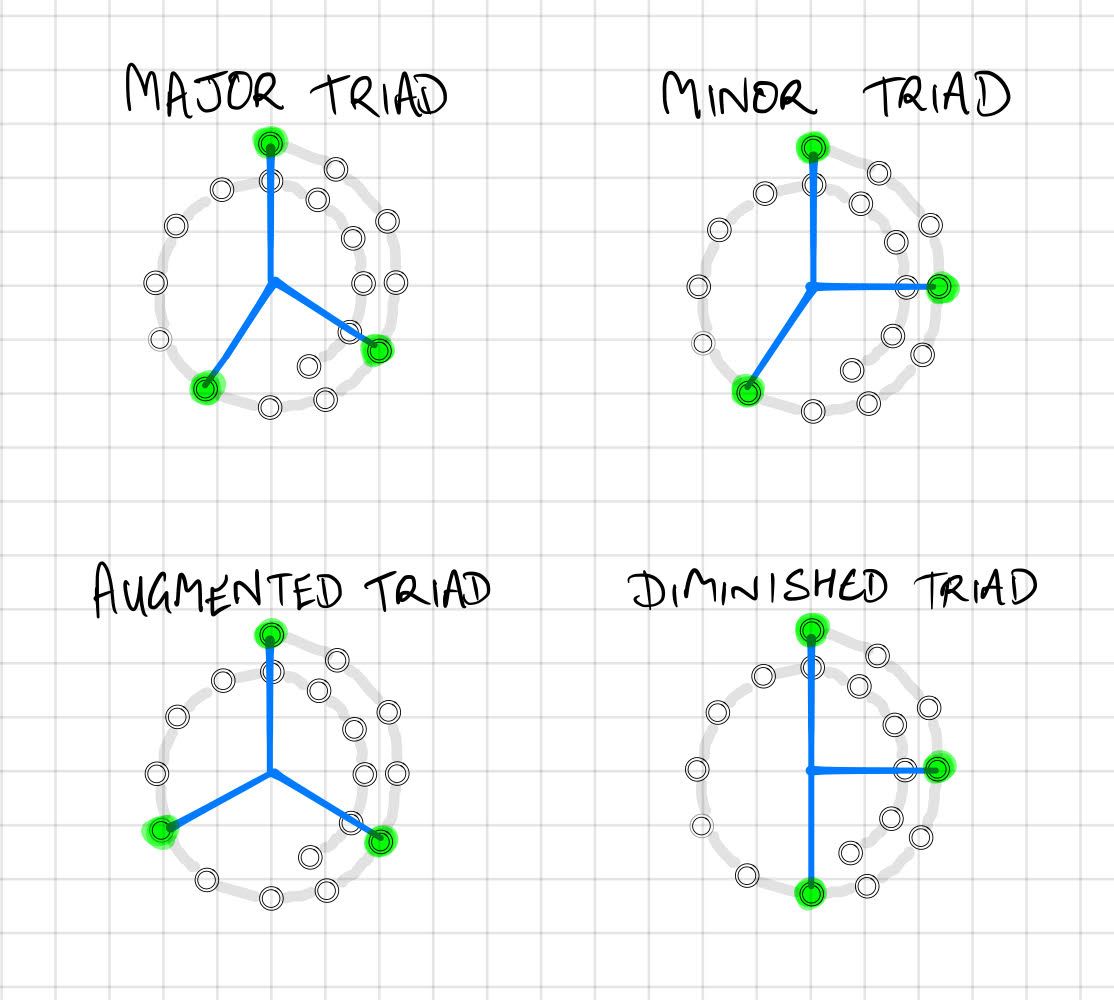 MAJOR TRIAD
MINOR TRIAD
AUGMENTED TRIAD
DIMINISHED TRIAD